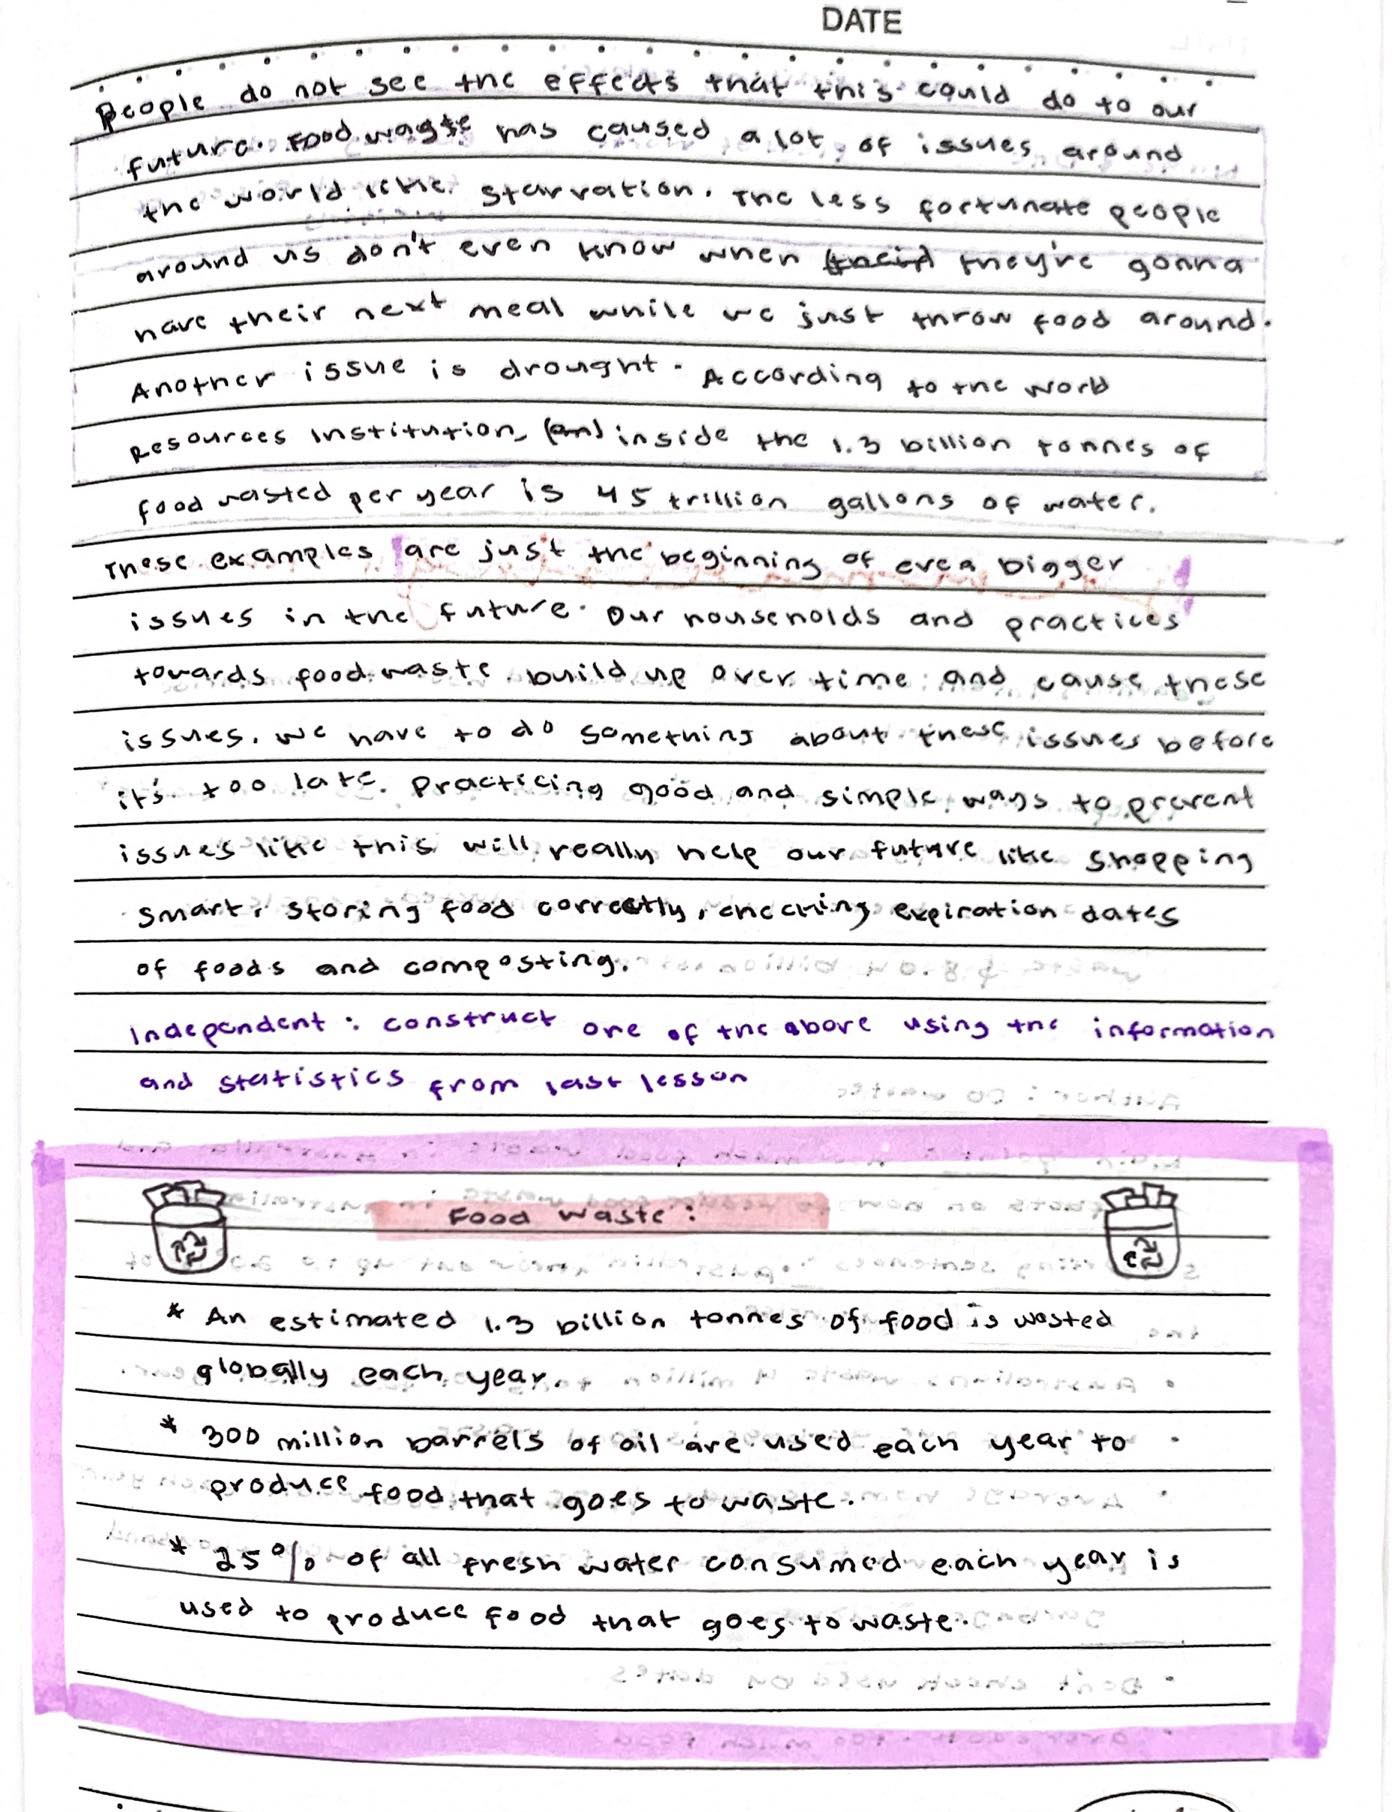 DATE
People do not see the effects that this could do to our
future. Food waste has caused a lot of issues around
the world like starvation. The less fortunate people
around us don't even know when (their) they're gonna
have their next meal while we just throw food around.
Another issue is drought. According to the World
Resources Institution, (an) inside the 1.3 billion tonnes of
food wasted per year is 45 trillion gallons of water.
These examples are just the beginning of even bigger
issues in the future. Our households and practices
towards food waste build up over time and cause these
issues. We have to do something about these issues before
it's too late. Practicing good and simple ways to prevent
issues like this will really help our future like shopping
smart, storing food correctly, checking expiration dates
of foods and composting.
Independent: construct one of the above using the information
and statistics from last lesson
Food Waste:
* An estimated 1.3 billion tonnes of food is wasted
globally each year.
* 300 million barrels of oil are used each year to
produce food that goes to waste.
* 25% of all fresh water consumed each year is
used to produce food that goes to waste.